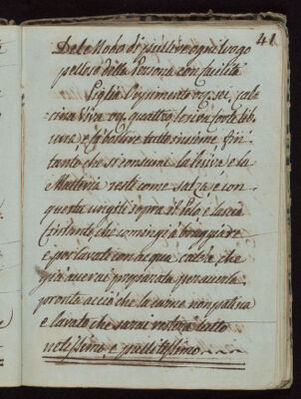 41
Del Modo di pullire ogni luogo
peloso della Persona con facilità
Piglia Orpimento oz. sei, calcina
Viva oz. quattro, lesiva forte lib.
una, e fà bollire tutto insieme fin
tanto, che si consume la lesiva e la
Materia resti come salza, e con
questa ungiti sopra il Pelo, e lascia
star tanto che cominci à
e poi lavati con acqua calda, che
già averai preparata per averla
pronta acciò che la carne non patisca
e lavato che sarai resterà tutto
netissimo, e pulitissimo